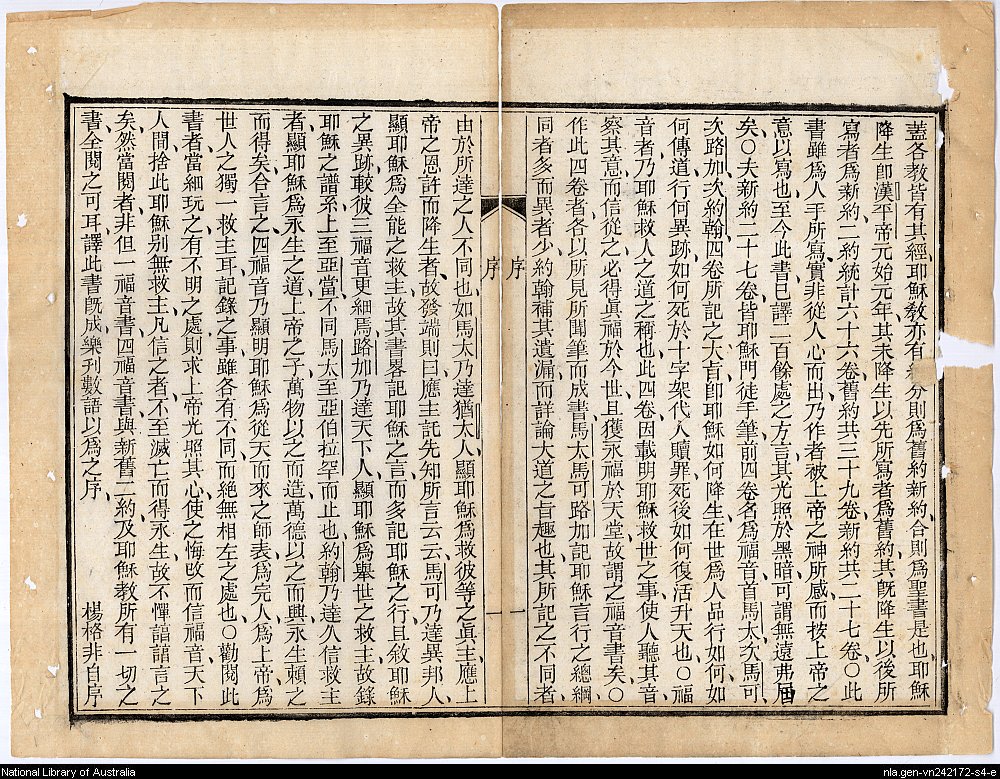 蓋各教皆有其經、耶穌教亦有分則爲舊約新約、合則爲聖書是也、耶穌
降生卽漢平帝元始元年、其未降生以先所寫者爲舊約、其旣降生以後所
寫者爲新約、二約統計六十六卷、舊約共三十九卷、新約共二十七卷○此
書雖爲人手所寫、實非從人心而出、乃作者被上帝之神所感、而按上帝之
意以寫也、至今此書已譯二百餘處之方言、其光照於黑暗、可謂無遠弗屆
矣○夫新約二十七卷、皆耶穌門徒手筆、前四卷名爲福音、首馬太、次馬可
次路加、次約翰、四卷所記之大旨、卽耶穌如何降生在世爲人、品行如何、如
何傳道、行何異跡、如何死於十字架、代人贖罪、死後如何復活升天也○福
音者、乃耶穌救人之道之稱也、此四卷因載明耶穌救世之事、使人聽其音
察其意而信從之、必得眞福於今世、且獲永福於天堂、故謂之福音書矣○
作此四卷者、各以所見所聞、筆而成書、馬太馬可路加記耶穌言行之總綱
同者多而異者少、約翰補其遺漏、而詳論大道之旨趣也、其所記之不同者
序
一
序
一
由於所達之人不同也、如馬太乃達猶太人、顯耶穌爲救彼等之眞主、應上
帝之恩許而降生者、故發端則曰、應主託先知所言云云、馬可乃達異邦人、
顯耶穌爲全能之救主、故其書畧記耶穌之言、而多記耶穌之行、且敘耶穌
之異跡、較彼三福音更細、馬路加乃達天下人、顯耶穌爲舉世之救主、故錄
耶穌之譜系、上至亞當、不同馬太至亞伯拉罕而止也、約翰乃達久信救主
者、顯耶穌爲永生之道、上帝之子、萬物以之而造、萬德以之而興、永生賴之
而得矣、合言之、四福音乃顯明耶穌爲從天而來之師表、爲完人、爲上帝、爲
世人之獨一救主耳、記錄之事雖各有不同、而絕無相左之處也○勸閱此
書者、當細玩之、有不明之處、則求上帝光照其心、使之悔改而信福音、天下
人間、捨此耶穌、別無救主、凡信之者、不至滅亡而得永生、故不憚諄諄言之
矣、然當閱者非但一福音書、四福音書與新舊二約、及耶穌教所有一切之
書、全閱之可耳、譯此書旣成、樂刊數語以爲之序、
楊格非自序
National Library of Australia
nla.gen-vn242172-s4-e